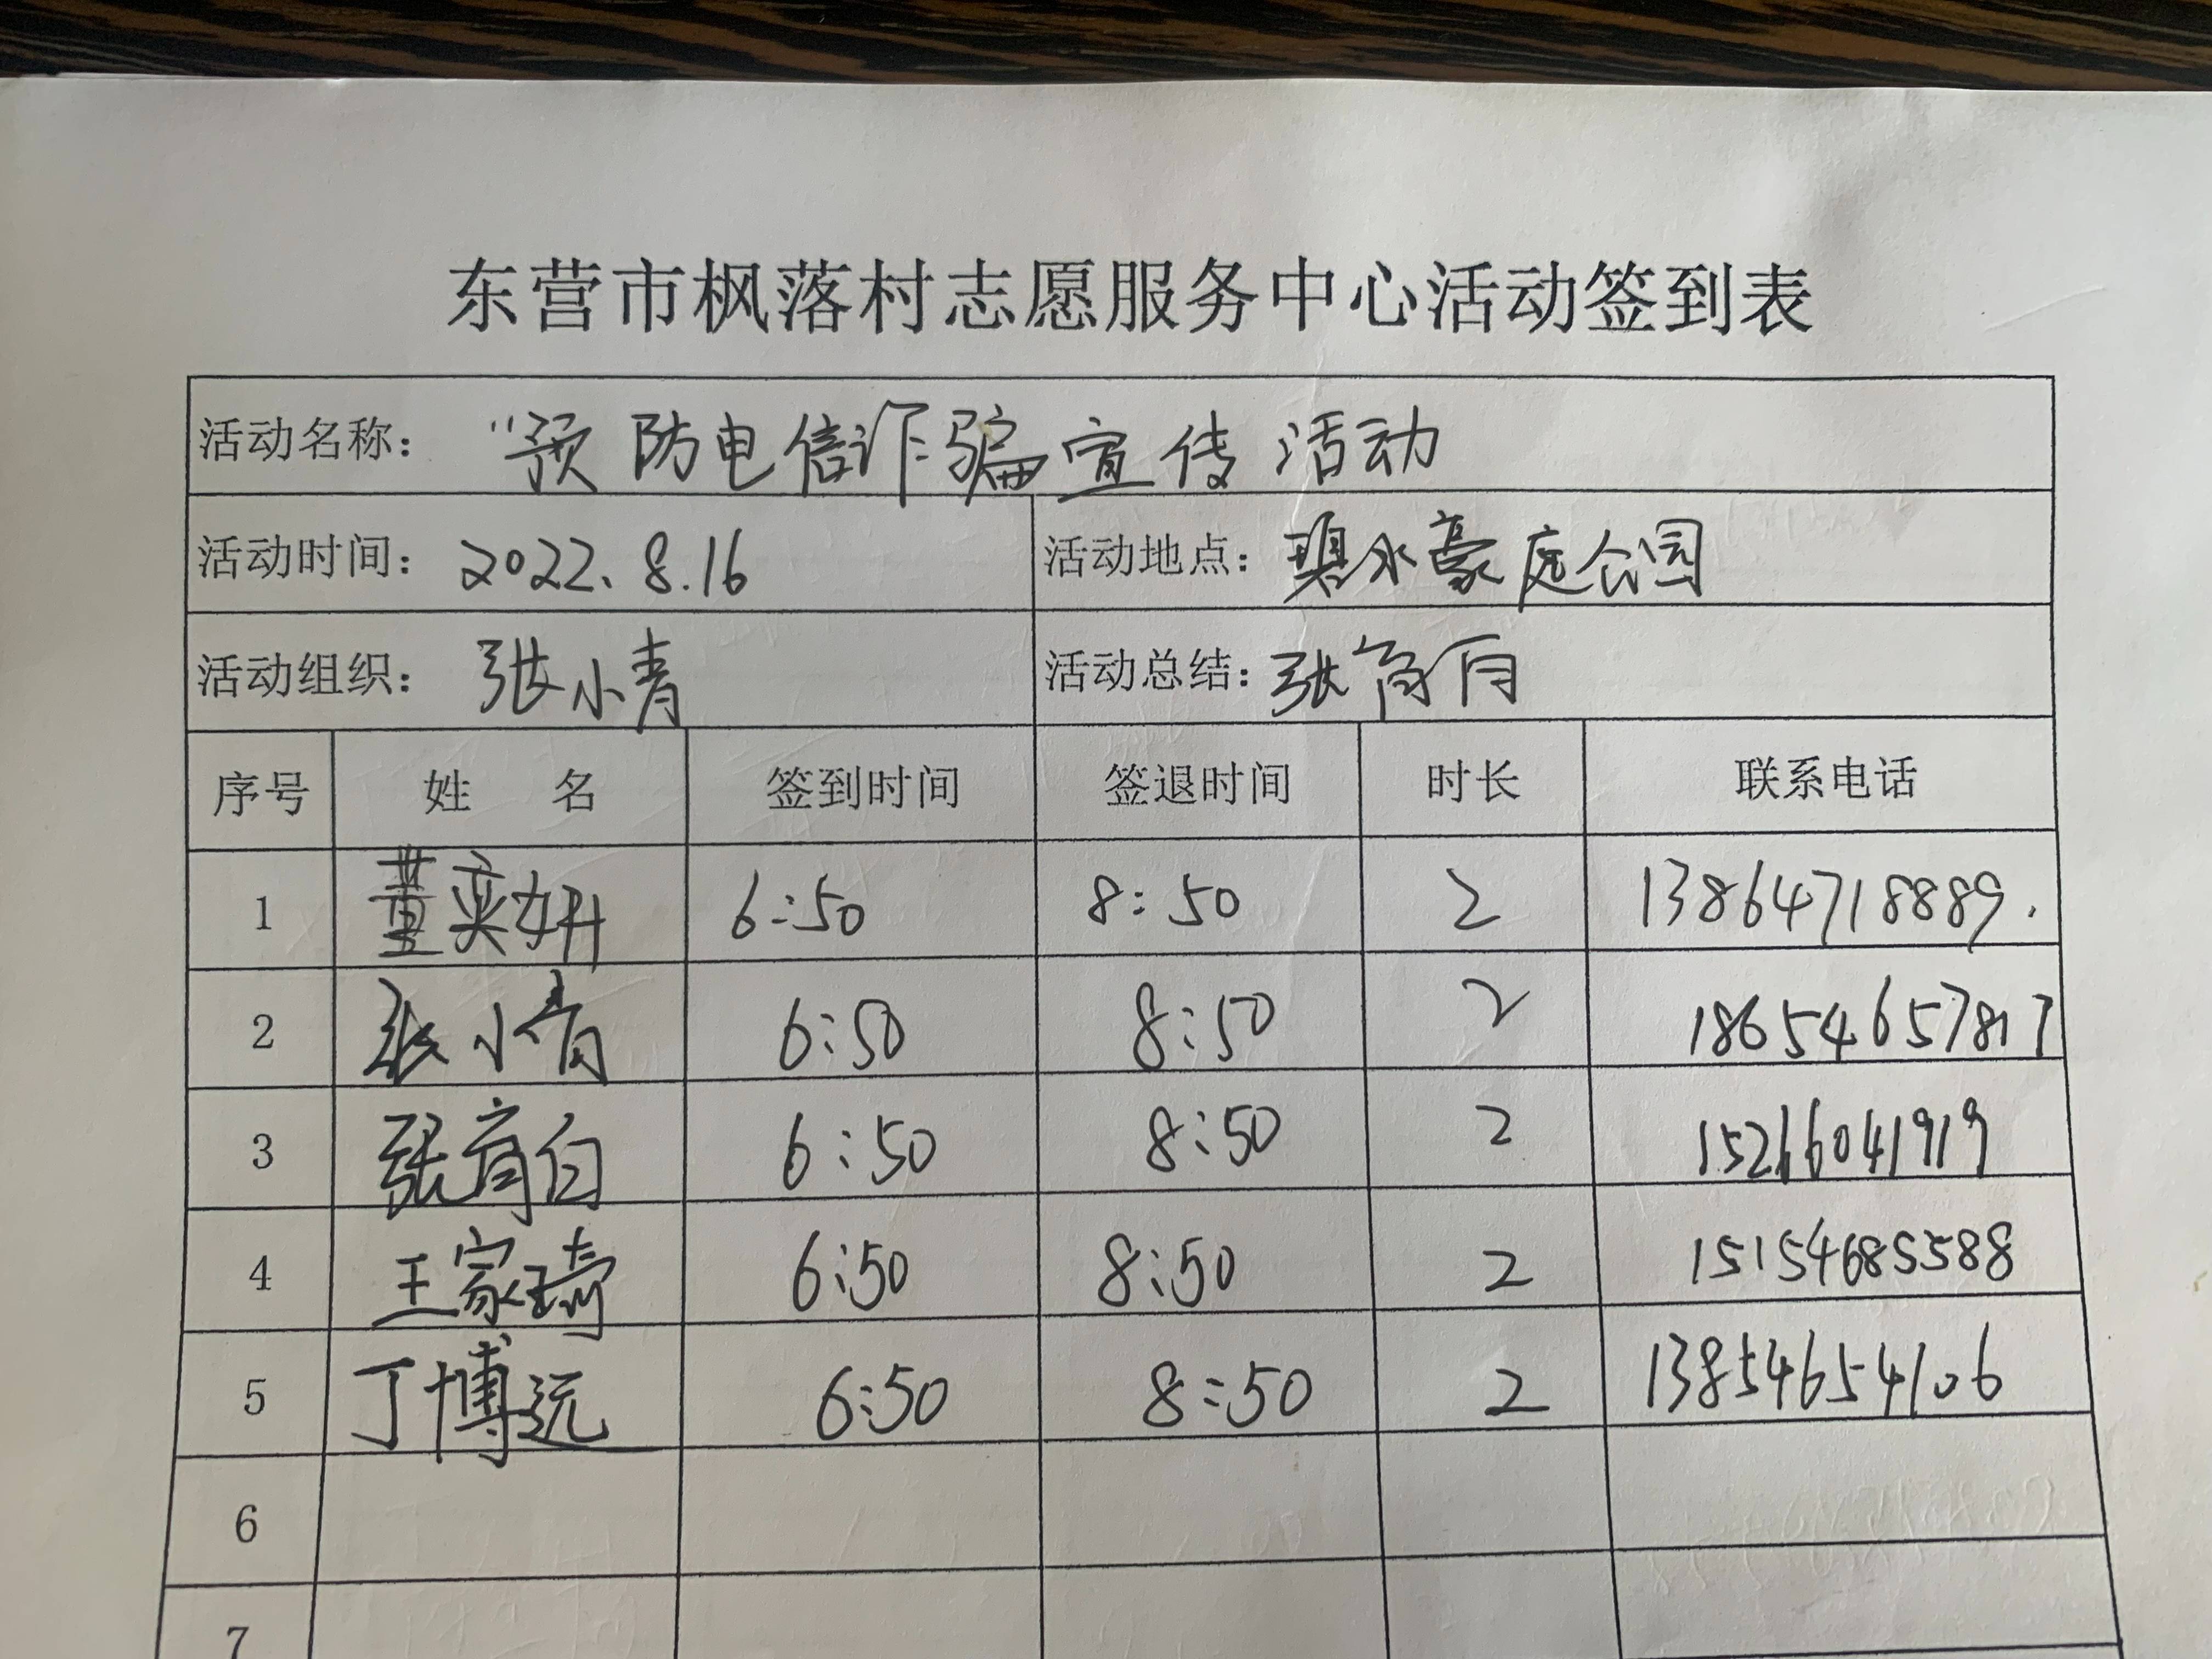 东营市枫落村志愿服务中心活动签到表
活动名称： “预防电信诈骗宣传活动
活动时间： 2022.8.16 活动地点： 碧水豪庭公园
活动组织： 张小青 活动总结： 张育白
序号 姓 名 签到时间 签退时间 时长 联系电话
1 董奕妍 6:50 8:50 2 13864718889.
2 张小青 6:50 8:50 2 18654657817
3 张育白 6:50 8:50 2 15266041919
4 王家琦 6:50 8:50 2 15154685588
5 丁博远 6:50 8:50 2 13854654106
6
7